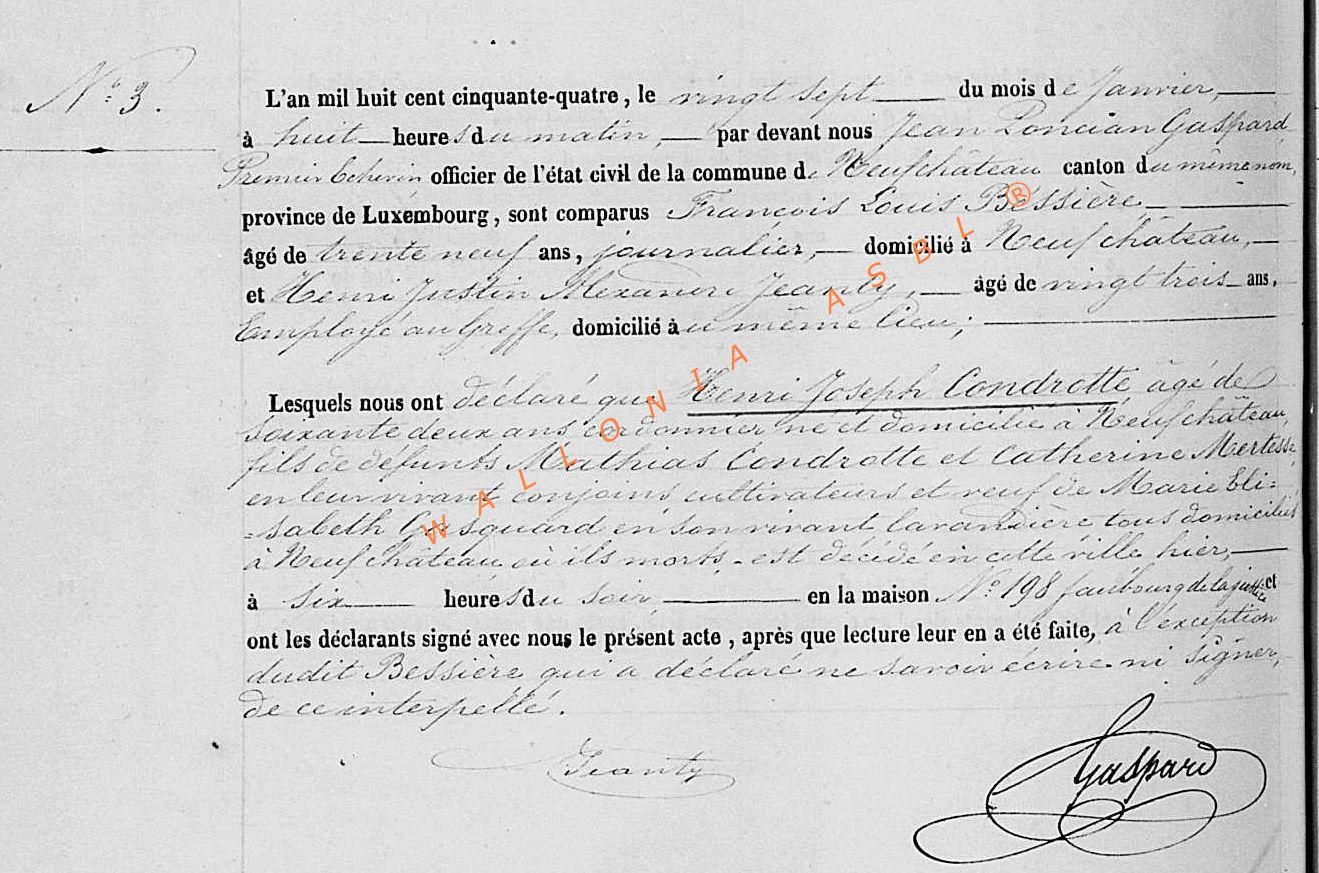 N° 3.
L'an mil huit cent cinquante-quatre, le vingt sept du mois de Janvier,
à huit heures du matin, par devant nous Jean Poncian Gaspard
Premier Echevin officier de l'état civil de la commune de Neufchâteau canton du même nom,
province de Luxembourg, sont comparus François Louis Bessière
âgé de trente neuf ans, journalier, domicilié à Neufchâteau,
et Henri Justin Alexandre Jeanty, âgé de vingt trois ans,
Employé au Greffe, domicilié au même lieu;
Lesquels nous ont déclaré que Henri Joseph Condrotte âgé de
soixante deux ans cordonnier né et domicilié à Neufchâteau,
fils de défunts Mathias Condrotte et Catherine
en leur vivant conjoins cultivateurs et veuf de Marie Eli=
=sabeth en son vivant lavandière tous domiciliés
à Neufchâteau où ils morts, est décédé en cette ville hier,
à six heures du soir, en la maison N° 198 faubourg de la justice et
ont les déclarants signé avec nous le présent acte, après que lecture leur en a été faite, à l'exception
dudit Bessière qui a déclaré ne savoir écrire ni signer,
de ce interpellé.
Jeanty
Gaspard
WALLONIA ASBL ®